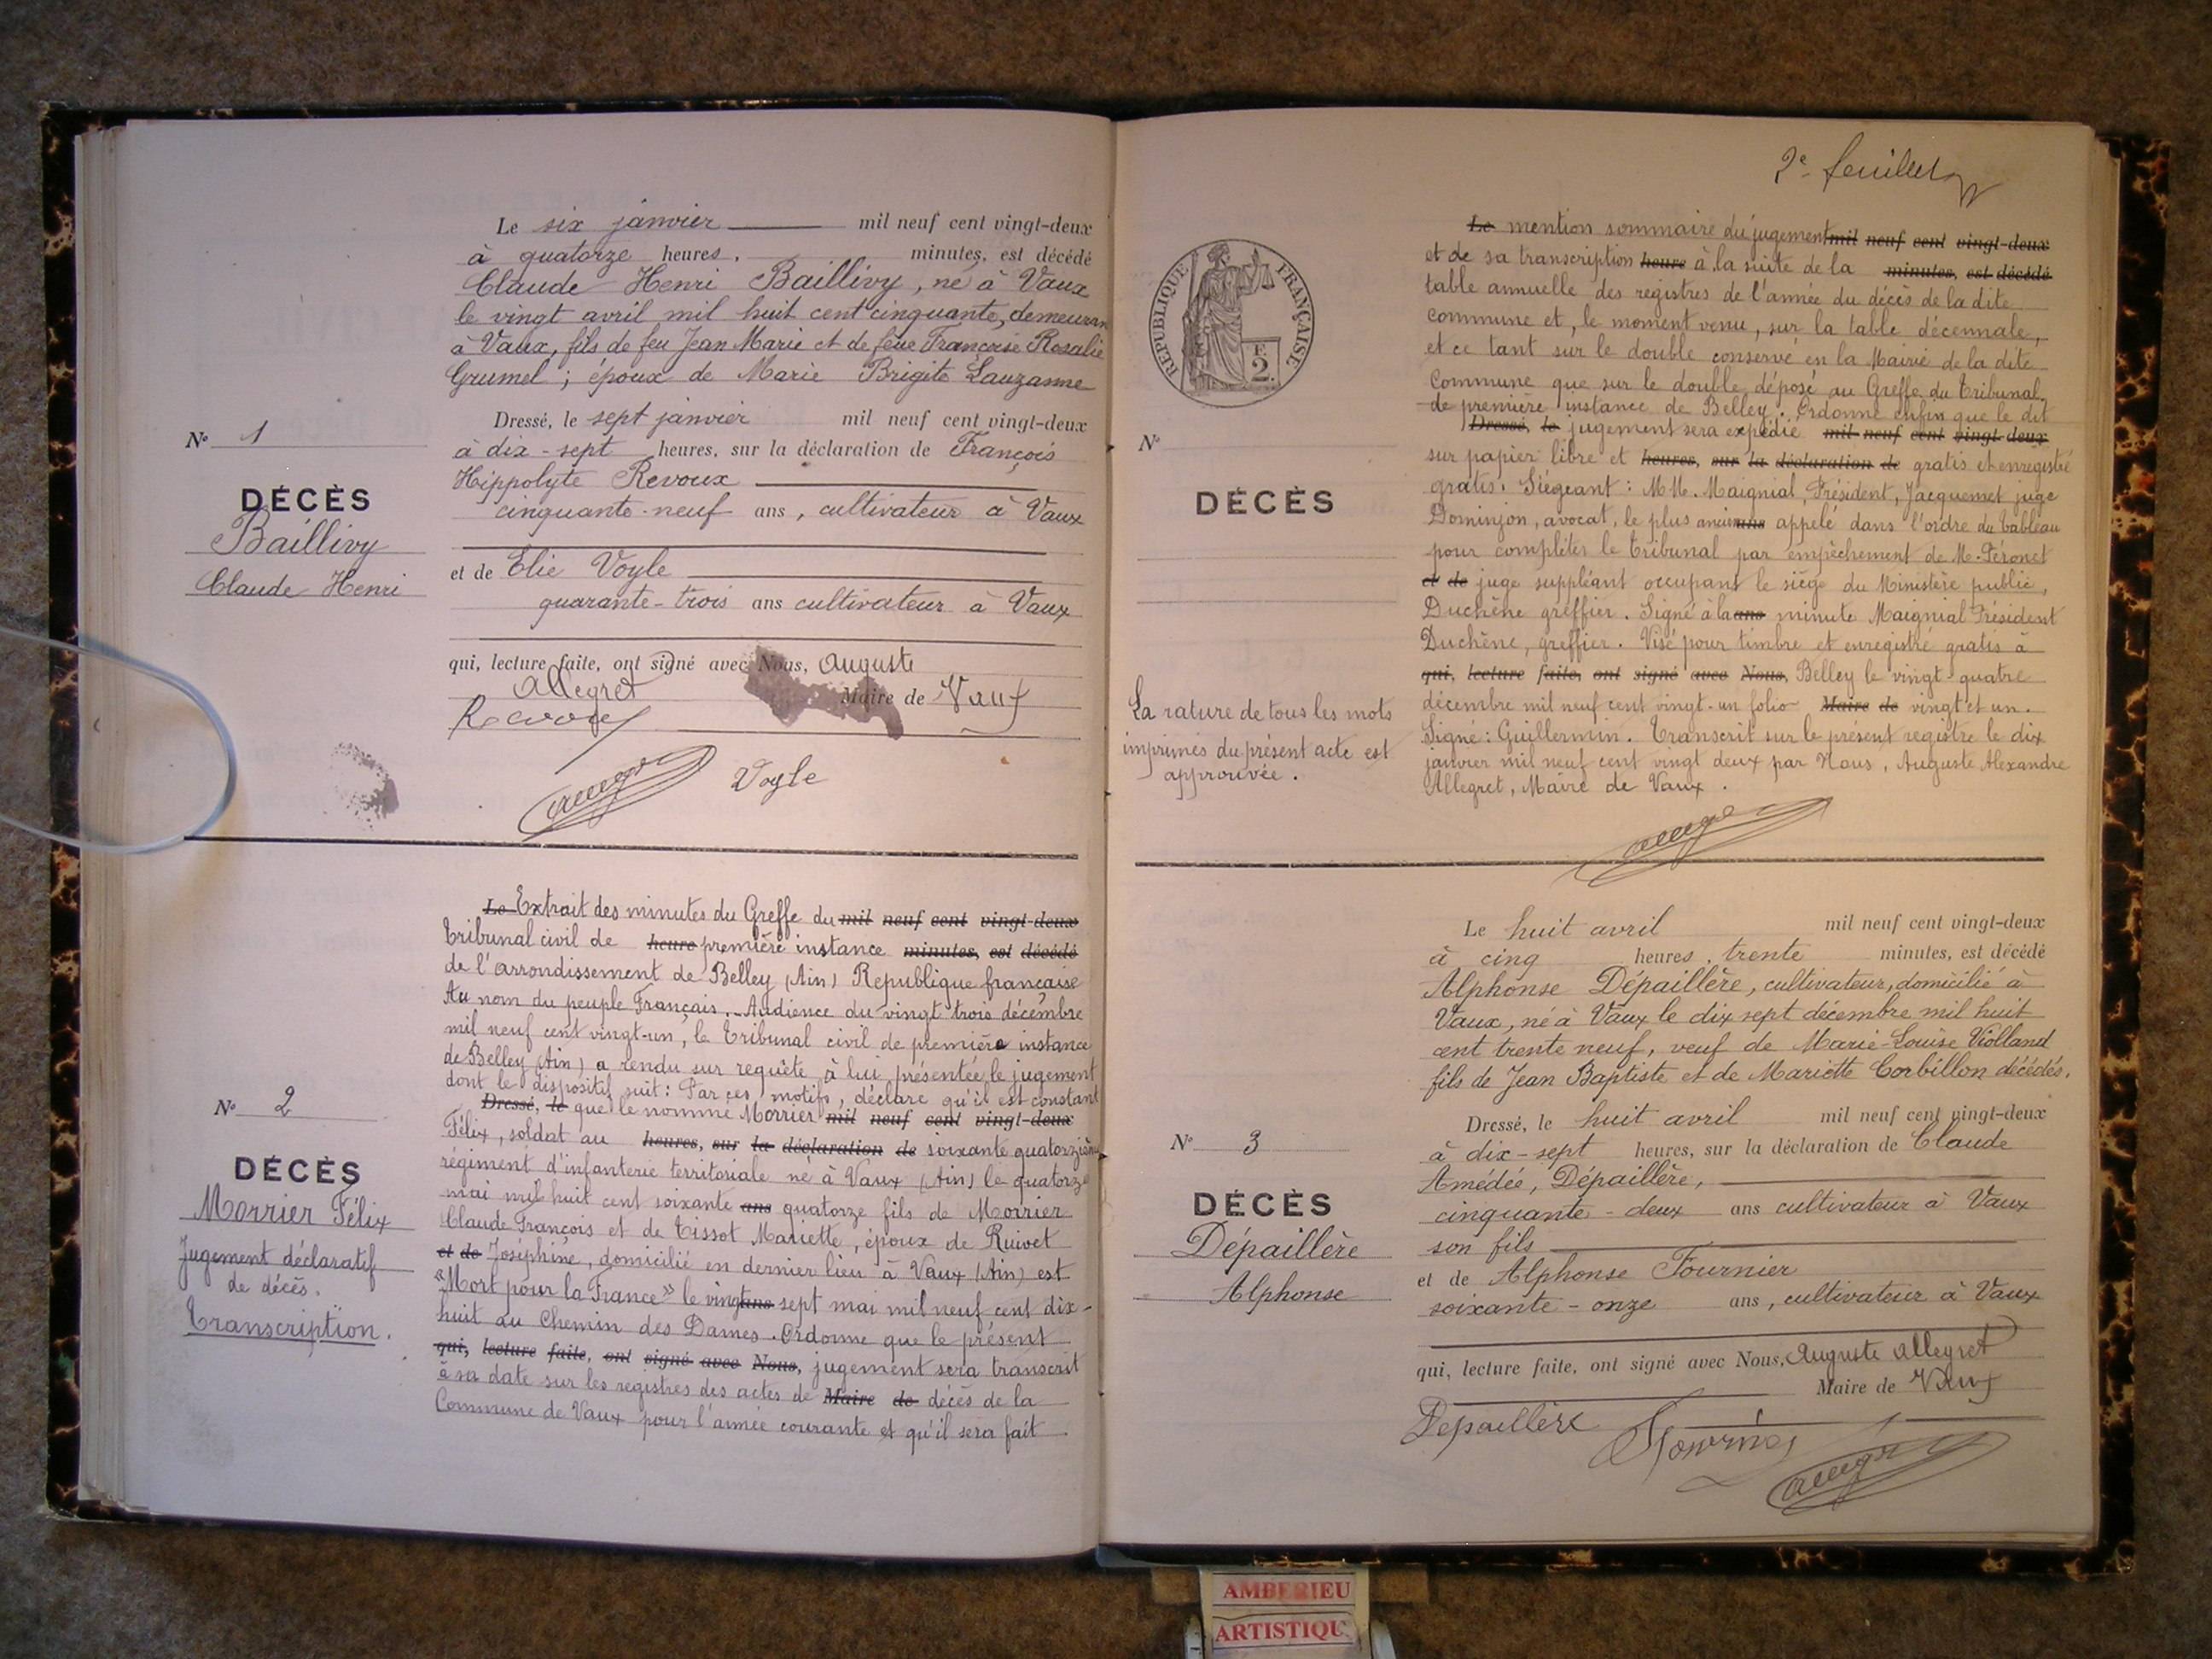 Le six janvier mil neuf cent vingt-deux
à quatorze heures, minutes, est décédé
Claude Henri Baillivy, né à Vaux
le vingt avril mil huit cent cinquante, demeuran
à Vaux, fils de feu Jean Marie et de feue Françoise Rosalie
Grumel ; époux de Marie Brigite Lauzanne
Dressé, le sept janvier mil neuf cent vingt-deux
à dix-sept heures, sur la déclaration de François
Hippolyte Revoux
cinquante-neuf ans, cultivateur à Vaux
et de Elie Voyle
quarante-trois ans cultivateur à Vaux
qui, lecture faite, ont signé avec Nous, Auguste
Allegret Maire de Vaux
Revoux
Allegret Voyle
No 1
DÉCÈS
Baillivy
Claude Henri
Le Extrait des minutes du Greffe du mil neuf cent vingt-deux
Tribunal civil de heure première instance minutes, est décédé
de l'arrondissement de Belley (Ain) Republique française
Au nom du peuple Français. Audience du vingt trois décembre
mil neuf cent vingt-un, le Tribunal civil de première instance
de Belley (Ain) a rendu sur requête à lui présentée le jugement
dont le dispositif suit : Par ces motifs, déclare qu'il est constant
Dressé, le que le nommé Morrier mil neuf cent vingt-deux
Félix, soldat au heures, sur la déclaration de soixante quatorzième
régiment d'infanterie territoriale né à Vaux (Ain) le quatorze
mai mil huit cent soixante ans quatorze fils de Moirier
Claude François et de Tissot Mariette, époux de Ruivet
et de Joséphine, domicilié en dernier lieu à Vaux (Ain) est
"Mort pour la France" le vingt ans sept mai mil neuf cent dix-
huit au Chemin des Dames. Ordonne que le présent
qui, lecture faite, ont signé avec Nous, jugement sera transcrit
à sa date sur les registres des actes de Maire de décès de la
Commune de Vaux pour l'année courante et qu'il sera fait
No 2
DÉCÈS
Morrier Félix
Jugement déclaratif
de décès.
Transcription.
2e feuillet
Le mention sommaire du jugement mil neuf cent vingt-deux
et de sa transcription heure à la suite de la minutes, est décédé
table annuelle des registres de l'année du décès de la dite
commune et, le moment venu, sur la table décennale,
et ce tant sur le double conservé en la Mairie de la dite
Commune que sur le double déposé au Greffe du Tribunal
de première instance de Belley. Ordonne enfin que le dit
Dressé, le jugement sera expédié mil neuf cent vingt-deux
sur papier libre et heures, sur la déclaration de gratis et enregistré
gratis. Siégeant : M.M. Maignial, Président, Jacquemet juge
Dominjon, avocat, le plus ancien ans appelé dans l'ordre du tableau
pour compléter le Tribunal par empêchement de M. Peronet
et de juge suppléant occupant le siège du Ministère public,
Duchêne greffier. Signé à la ans minute Maignial Président
Duchêne, greffier. Visé pour timbre et enregistré gratis à
qui, lecture faite, ont signé avec Nous, Belley le vingt-quatre
décembre mil neuf cent vingt-un folio Maire de vingt et un.
Signé : Guillermin. Transcrit sur le présent registre le dix
janvier mil neuf cent vingt deux par Nous, Auguste Alexandre
Allegret, Maire de Vaux.
Allegret
REPUBLIQUE FRANÇAISE
F.
2.
No
DÉCÈS
La rature de tous les mots
imprimés du présent acte est
approuvée.
Le huit avril mil neuf cent vingt-deux
à cinq heures, trente minutes, est décédé
Alphonse Dépaillère, cultivateur, domicilié à
Vaux, né à Vaux le dix sept décembre mil huit
cent trente neuf, veuf de Marie-Louise Violland
fils de Jean Baptiste et de Mariette Corbillon décédés.
Dressé, le huit avril mil neuf cent vingt-deux
à dix-sept heures, sur la déclaration de Claude
Amédée, Dépaillère,
cinquante-deux ans cultivateur à Vaux
son fils
et de Alphonse Fournier
soixante-onze ans, cultivateur à Vaux
qui, lecture faite, ont signé avec Nous, Auguste Allegret
Maire de Vaux
Depaillère Fournier
Allegret
No 3
DÉCÈS
Dépaillère
Alphonse
AMBERIEU
ARTISTIQU